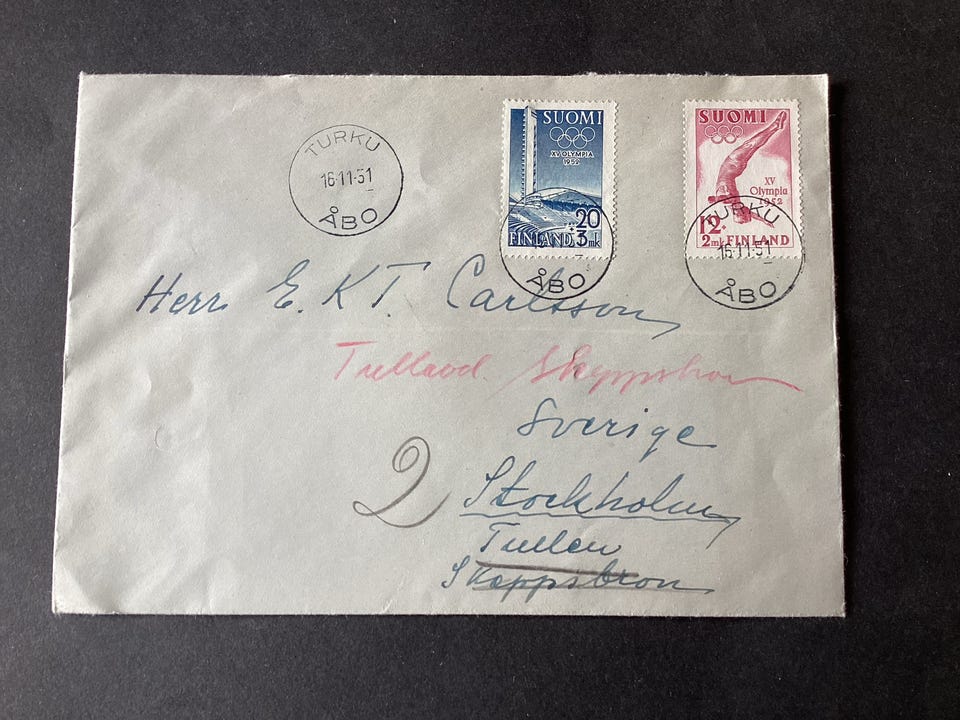 TURKU
16·11·51
ÅBO
SUOMI
XV OLYMPIA
1952
20
+3 mk
FINLAND
ÅBO
SUOMI
XV
Olympia
1952
12+
2mk FINLAND
TURKU
15·11·51
ÅBO
Herr E. K T. Carlsson
Skeppsbron
Sverige
2
Stockholm
Tullen
Skeppsbron